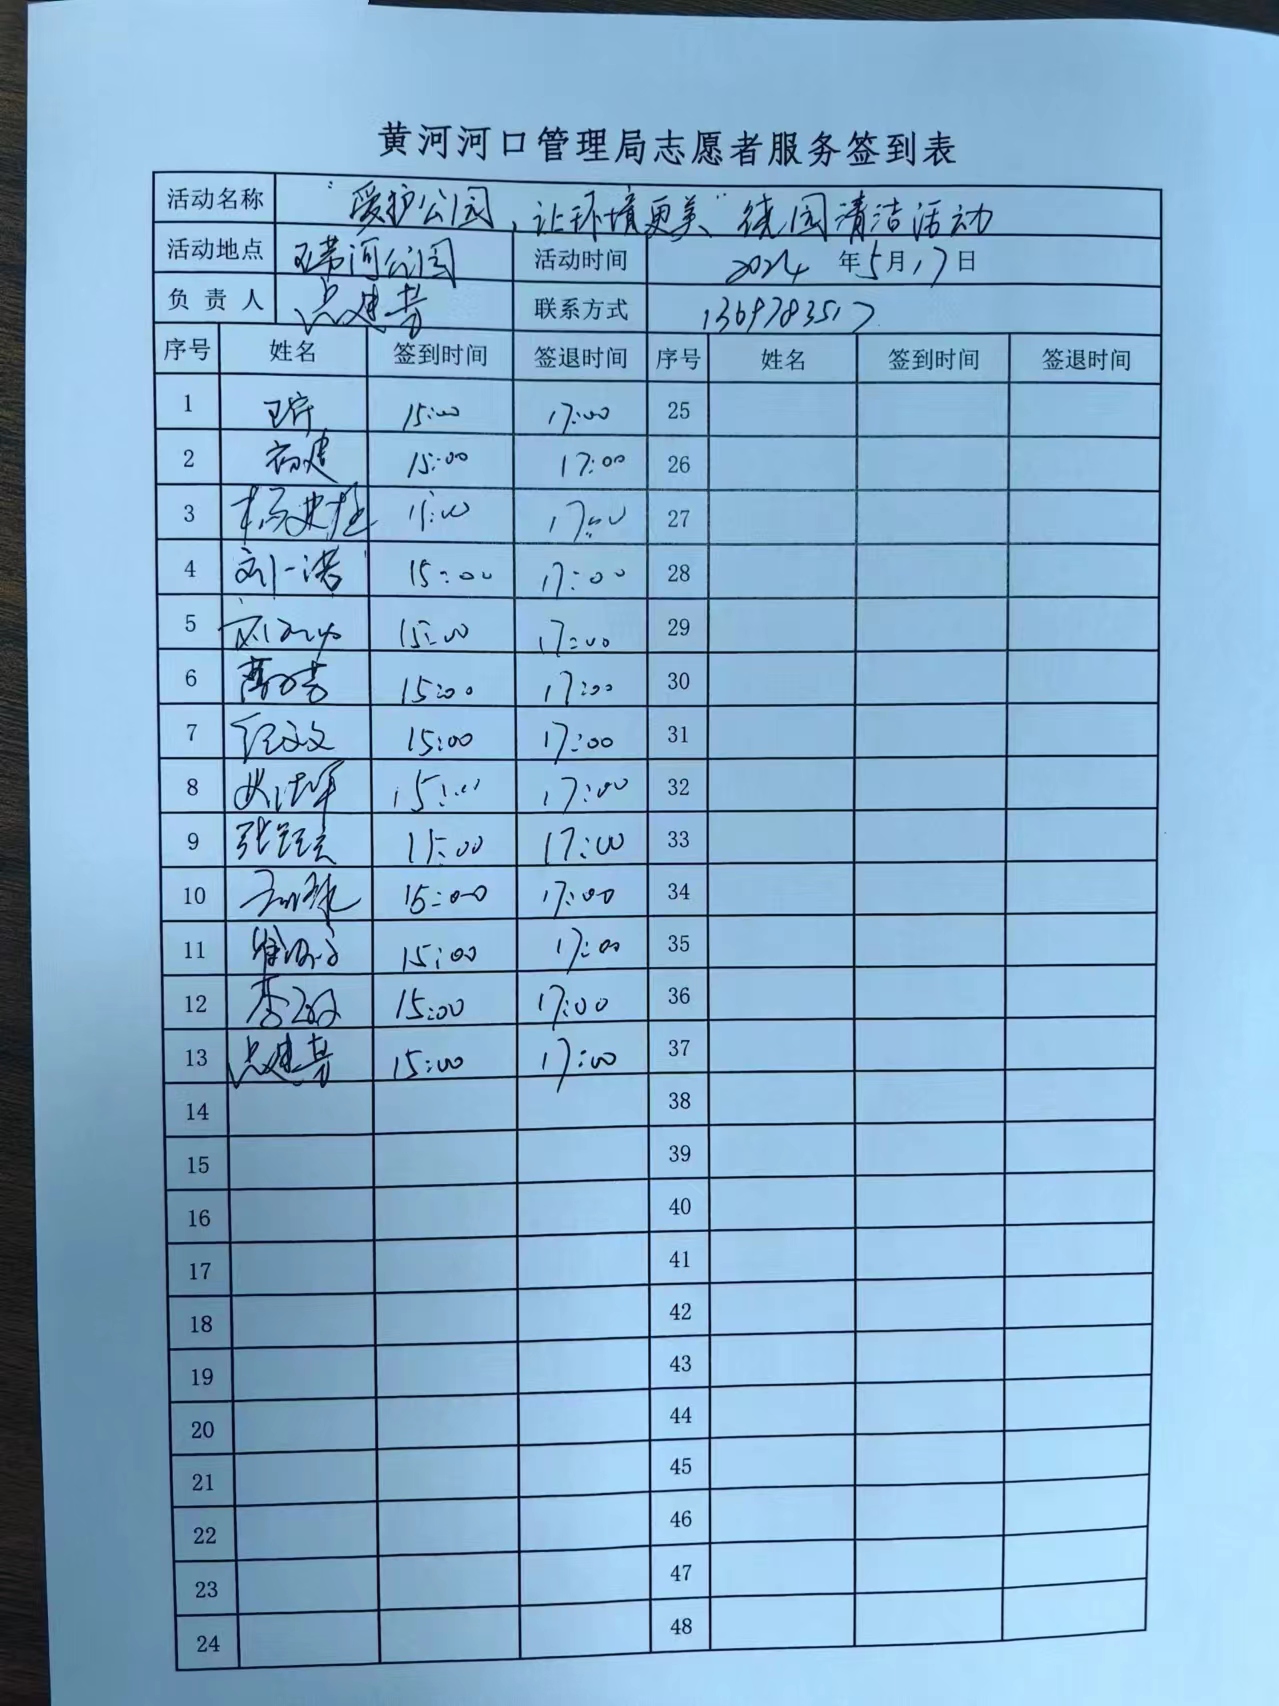 黄河河口管理局志愿者服务签到表
活动名称 "爱护公园,让环境更美"绕园清洁活动
活动地点 玉带河公园 活动时间 2024 年 5 月 17 日
负责人 联系方式
序号 姓名 签到时间 签退时间 序号 姓名 签到时间 签退时间
1 王宇 15:00 17:00 25
2 15:00 17:00 26
3 15:00 17:00 27
4 刘一诺 15:00 17:00 28
5 15:00 17:00 29
6 15:00 17:00 30
7 15:00 17:00 31
8 15:00 17:00 32
9 15:00 17:00 33
10 15:00 17:00 34
11 15:00 17:00 35
12 15:00 17:00 36
13 15:00 17:00 37
14 38
15 39
16 40
17 41
18 42
19 43
20 44
21 45
22 46
23 47
24 48